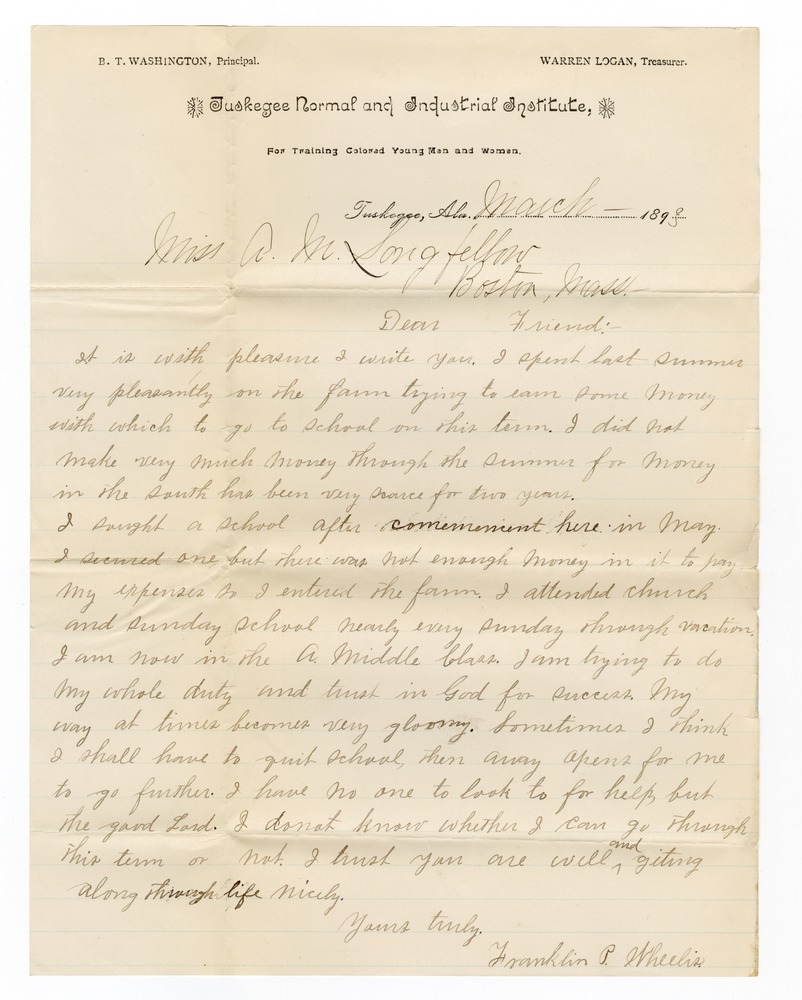 B. T. WASHINGTON, Principal.
WARREN LOGAN, Treasurer.
Tuskegee Normal and Industrial Institute,
For Training Colored Young Men and Women.
Tuskegee, Ala. March — 1893
Miss A. M. Longfellow
Boston, Mass.—
Dear Friend:—
It is with pleasure I write you. I spent last summer
very pleasantly on the farm trying to earn some money
with which to go to school on this term. I did not
make very much money through the summer for money
in the south has been very scarce for two years.
I sought a school after comemement here in May.
I secured one but there was not enough money in it to pay
my expenses so I entered the farm. I attended church
and sunday school nearly every sunday through vacation.
I am now in the A. Middle Class. I am trying to do
my whole duty and trust in God for success. My
way at times becomes very gloomy. Sometimes I think
I shall have to quit school, then away opens for me
to go further. I have no one to look to for help, but
the good Lord. I donot know whether I can go through
this term or not. I trust you are well, and geting
along through life nicely.
Yours truly.
Franklin P. Wheelis